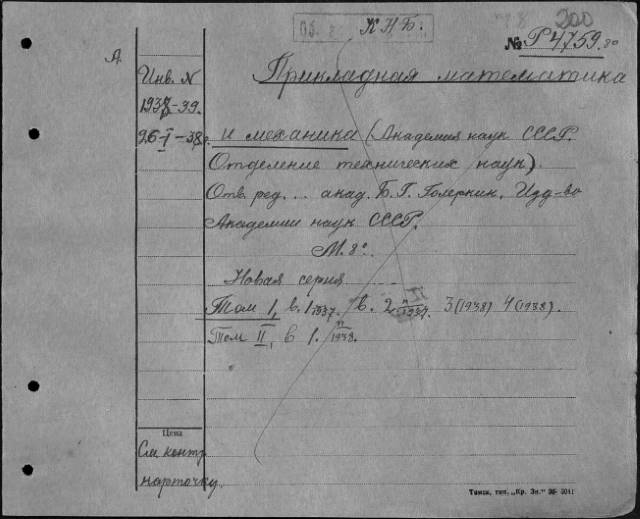 К.Н.Б.
200
№ Р4759.80
А.
Инв. N
1938-39.
26-I-38г.
Прикладная математика
и механика (Академия наук СССР.
Отделение технических наук)
Отв. ред... акад. Б. Г. Голеркин, Изд-во
Академии наук СССР.
М. 8°
Новая серия
Том I, в. 1 1937. в. 2 1937. 3 (1938) 4 (1938).
Том II, в 1. 1938.
Цена
См. контр.
карточку.
Томск, тип. „Кр. Зн."